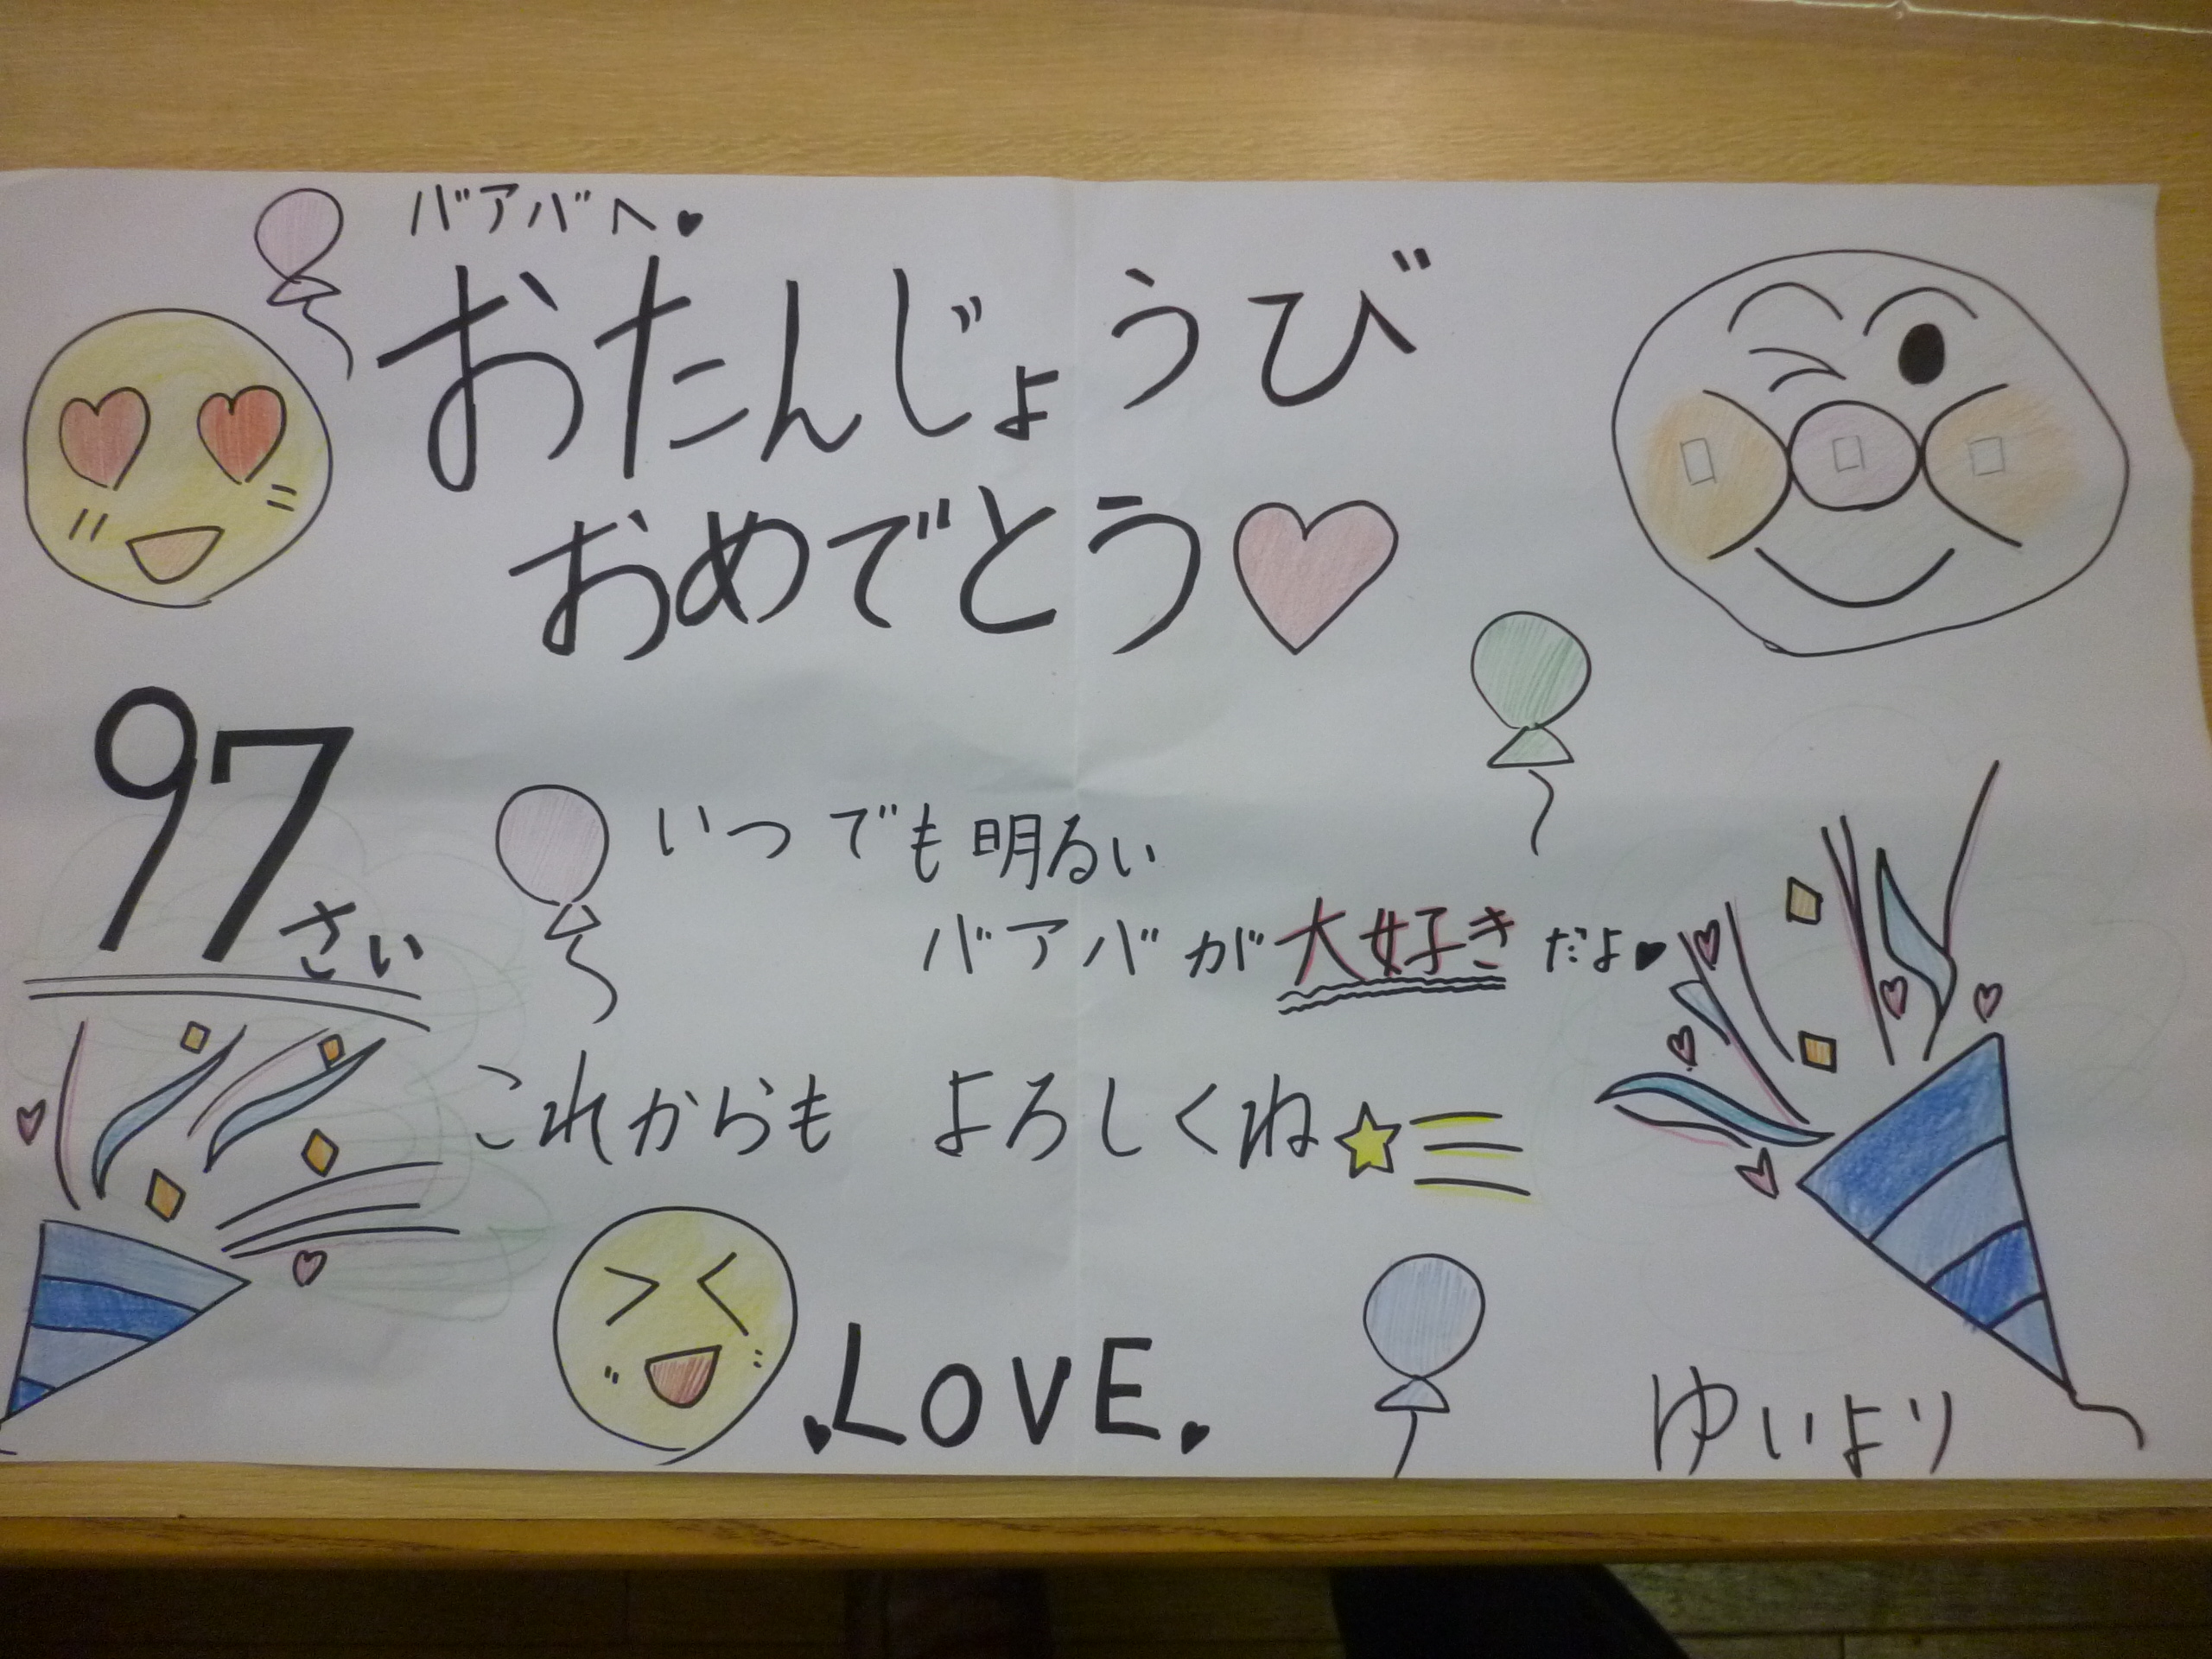 バアバへ♥
おたんじょうび
おめでとう♡
97さい
いつでも明るい
バアバが大好きだよ♥
これからも よろしくね☆
♥LOVE♥
ゆいより